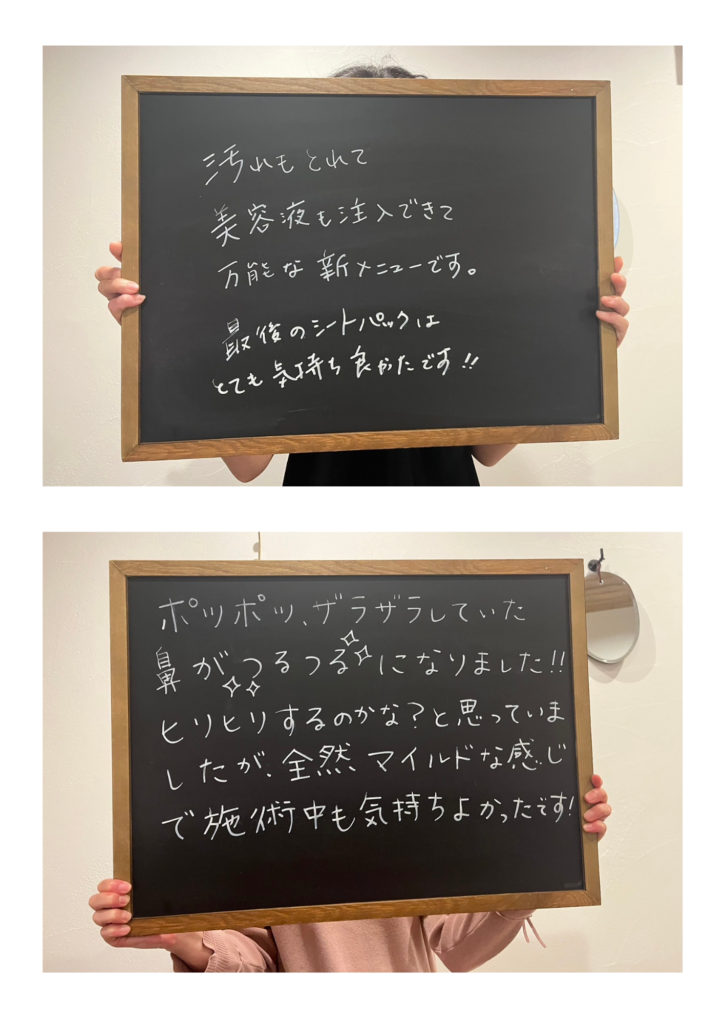 汚れもとれて
美容液も注入できて
万能な新メニューです。
最後のシートパックは
とても気持ち良かたです!!
ポツポツ、ザラザラしていた
鼻がつるつるになりました!!
ヒリヒリするのかな?と思っていま
したが、全然、マイルドな感じ
で施術中も気持ちよかったです!